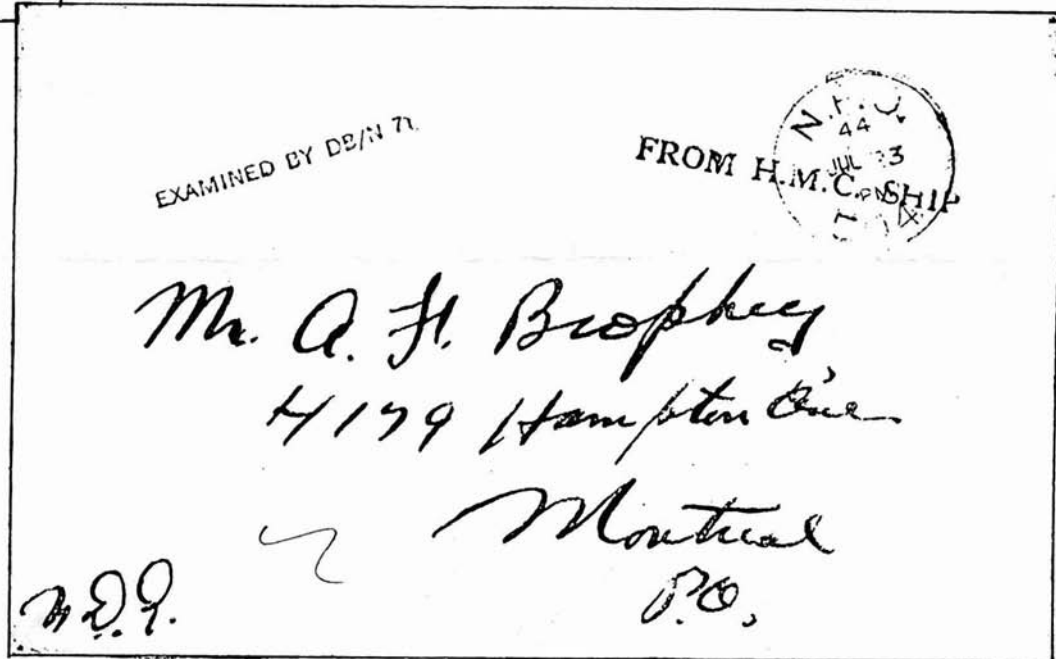 EXAMINED BY DB/N 71.
FROM H.M.C. SHIP
N.P.O.
44
JUL 3
PM
Mr. A. H. Brophey
4179 Hampton Ave
Montreal
P.Q.